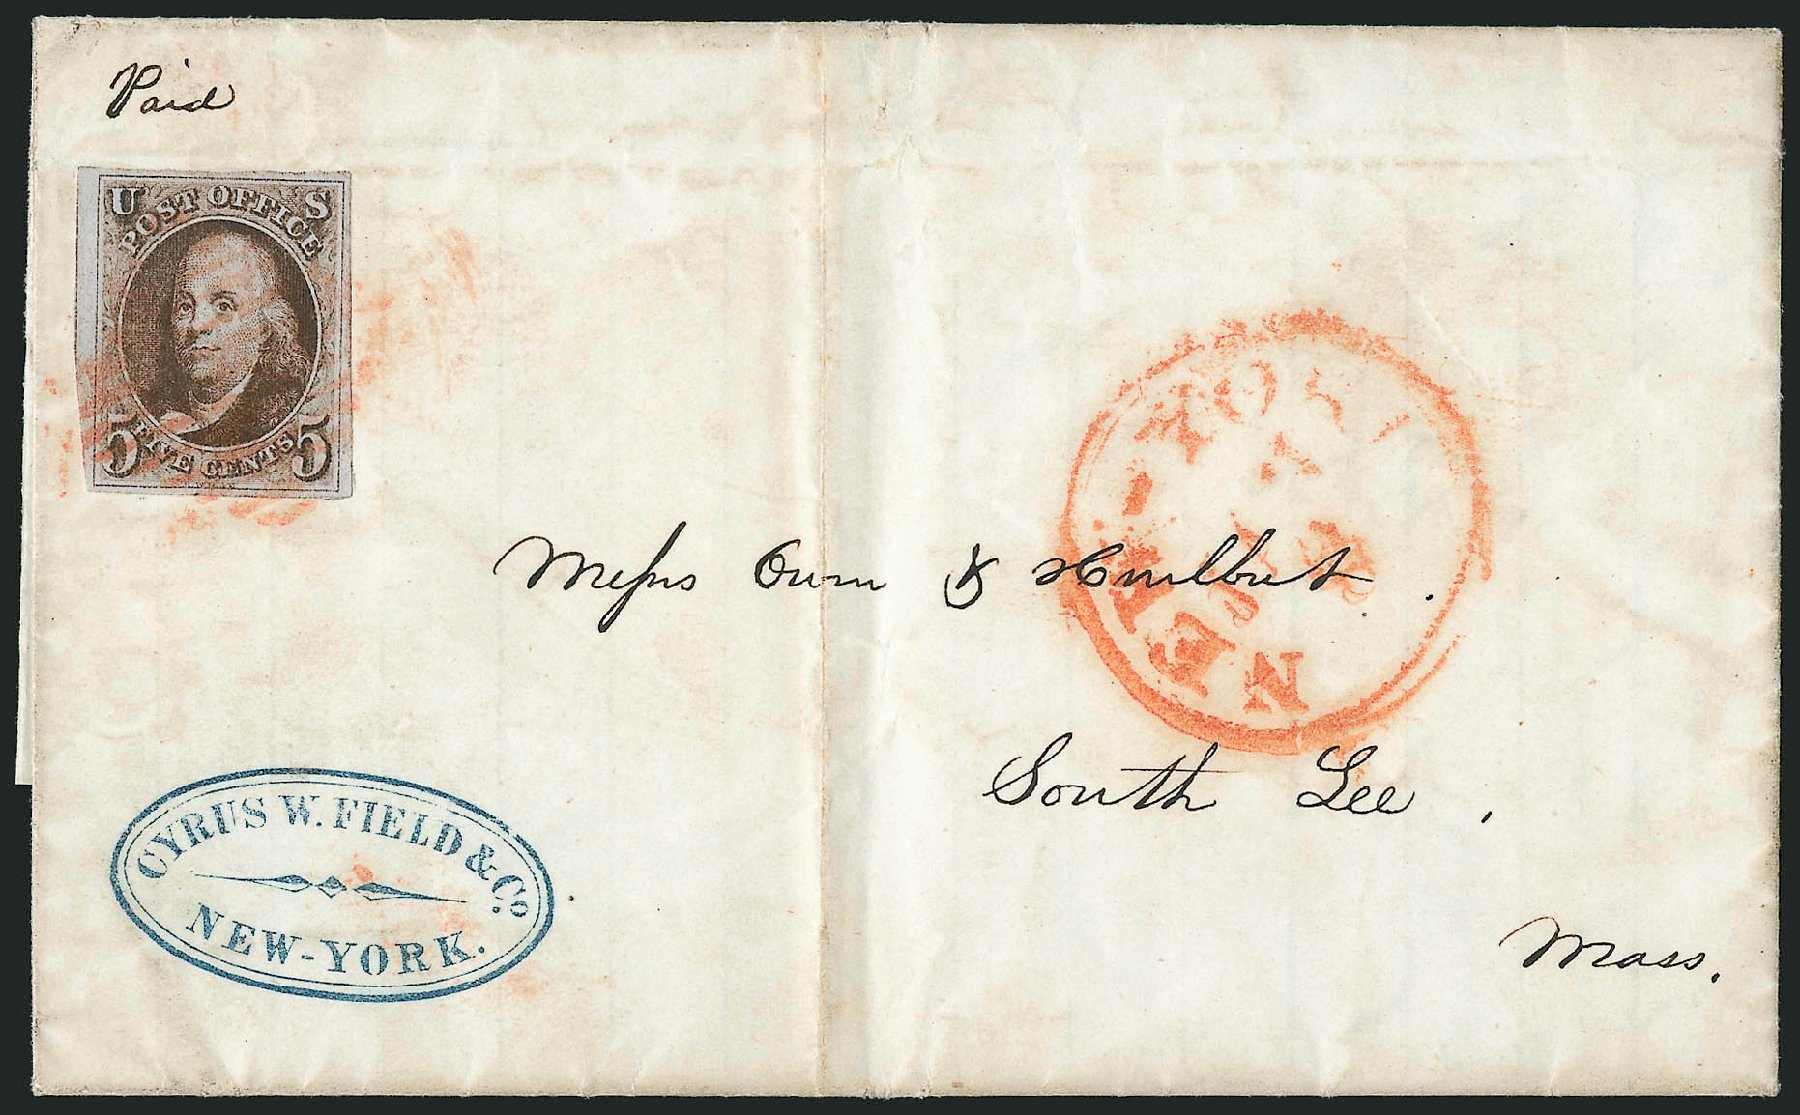 Paid
U S
POST OFFICE
5 FIVE CENTS 5
NEW-YORK
Messrs Owen & Hurlbut.
South Lee,
Mass.
CYRUS W. FIELD & Co.
NEW-YORK.